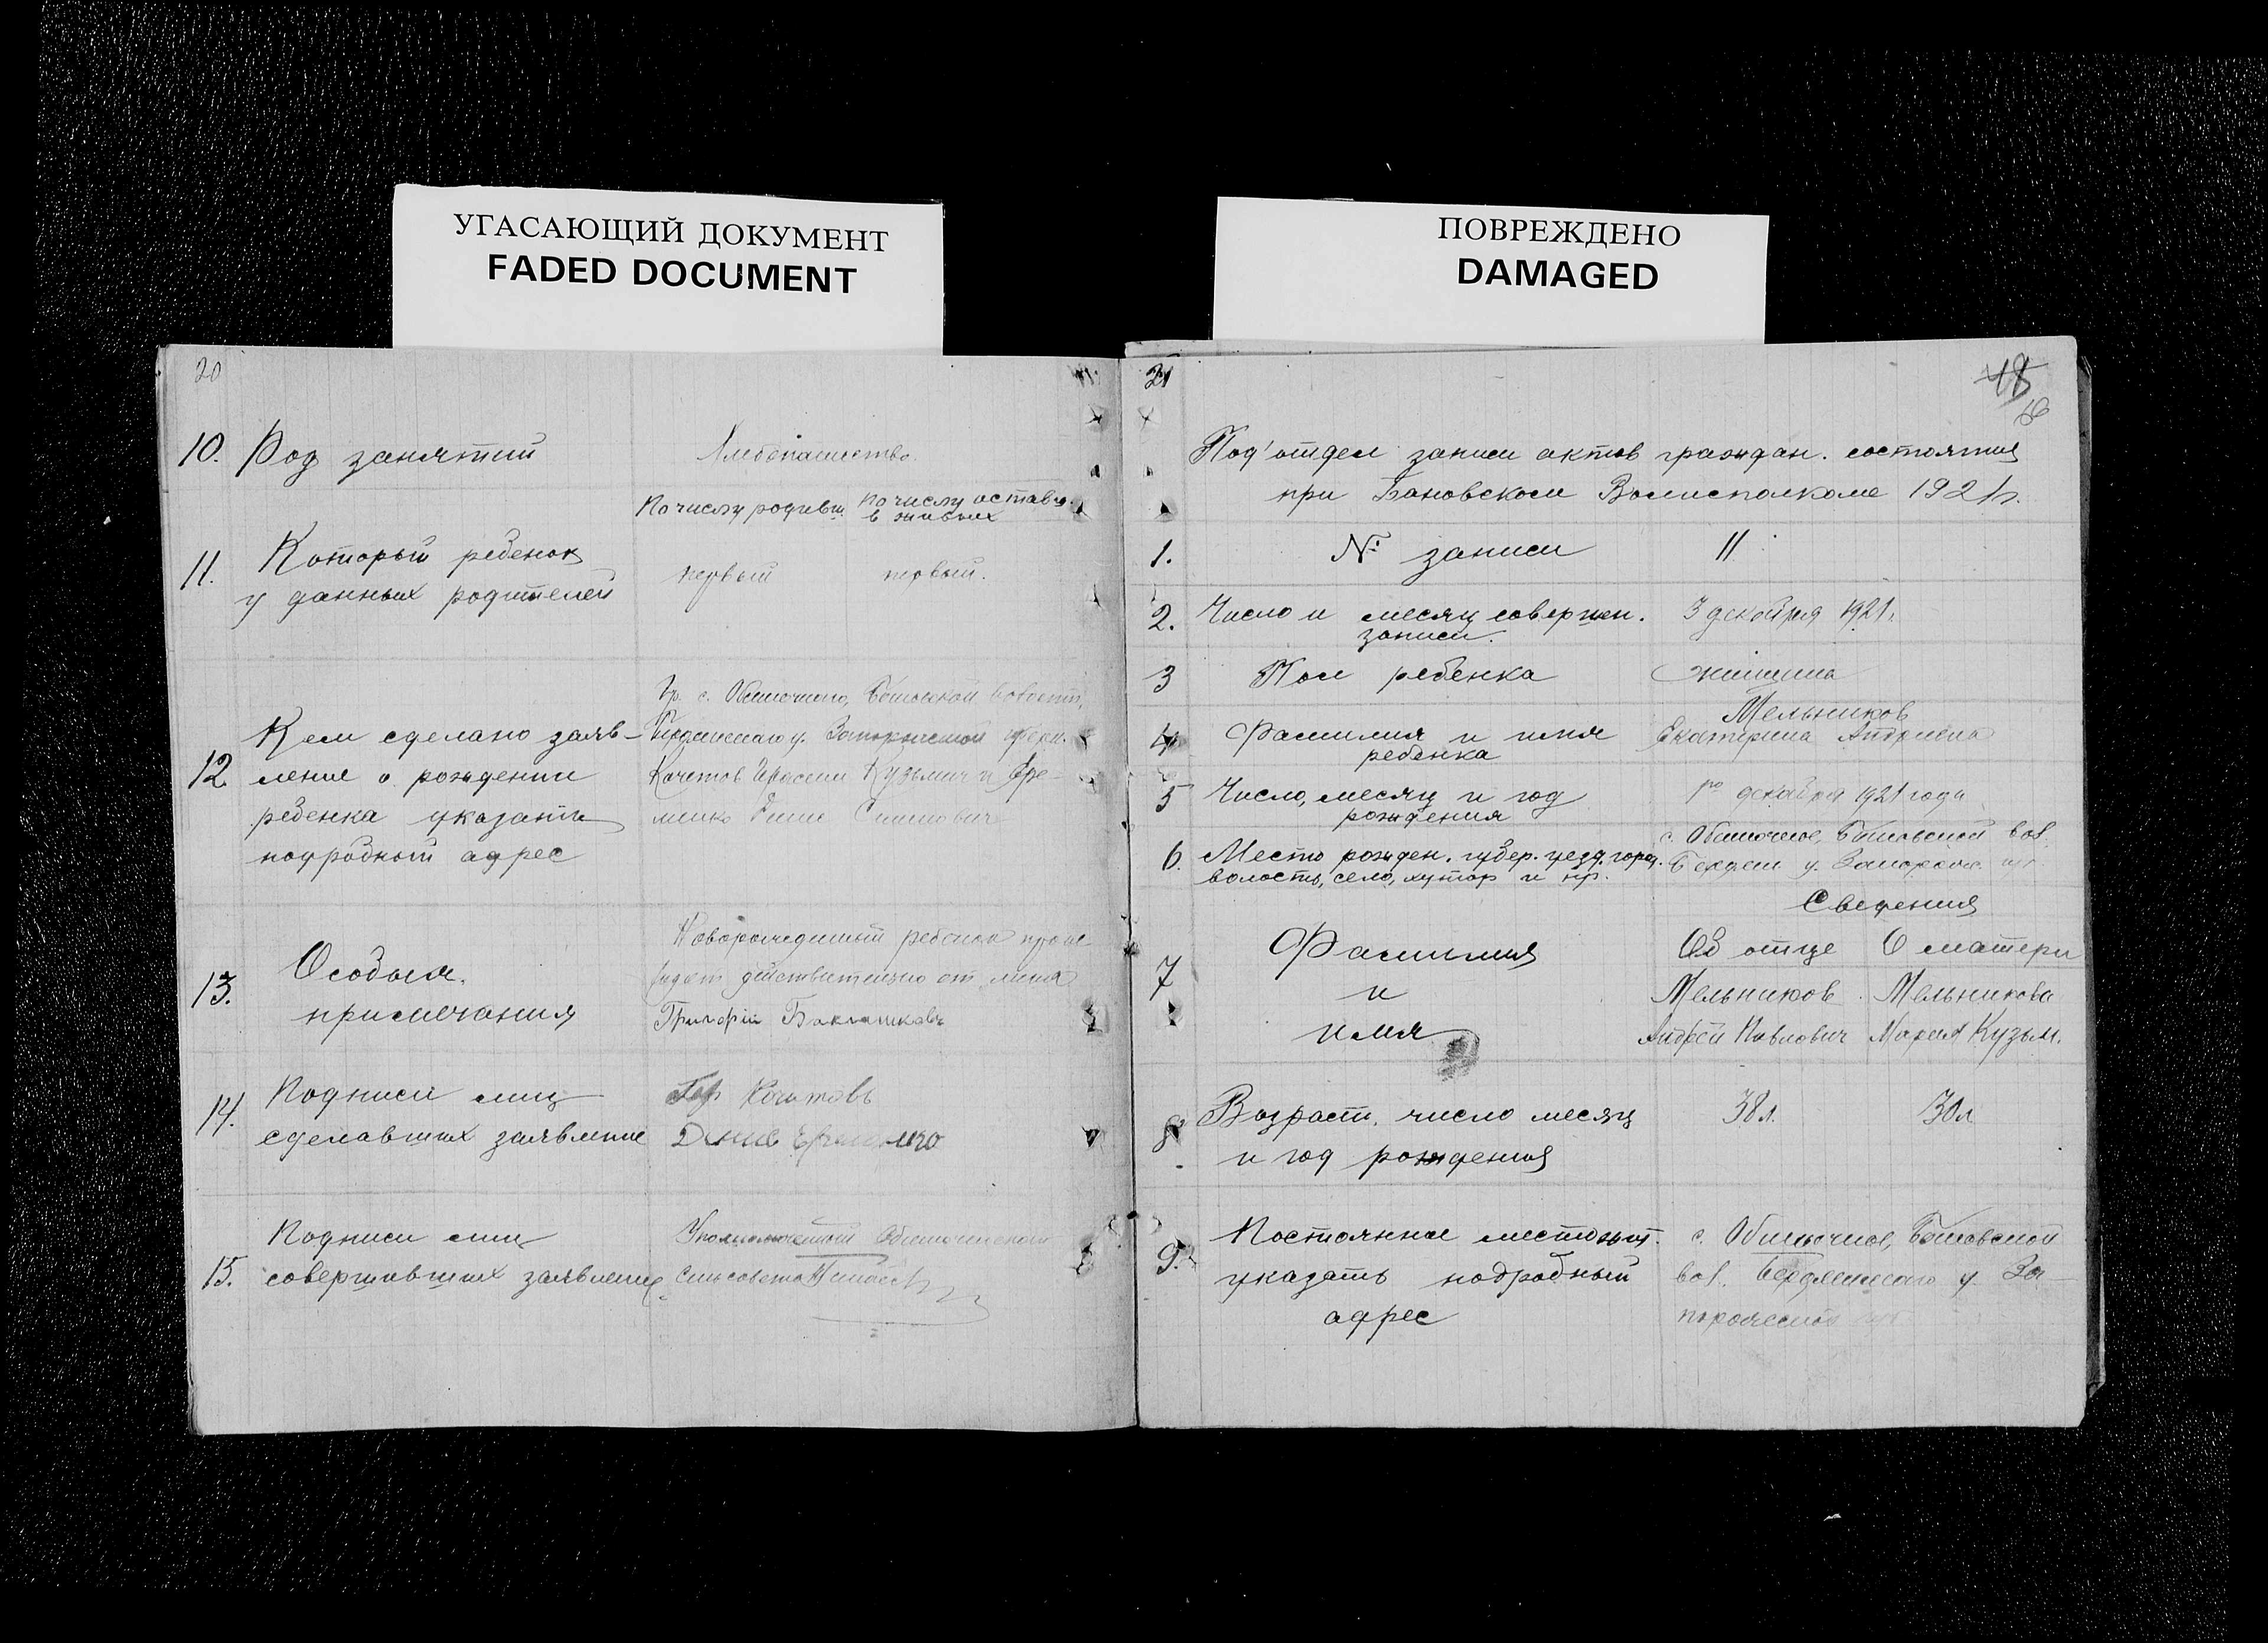 УГАСАЮЩИЙ ДОКУМЕНТ
FADED DOCUMENT
20
10. Род занятий
Хлебопашество.
По числу родивш. По числу оставш.
в живых
11. Который ребенок
у данных родителей
первый первый.
12 Кем сделано заяв-
ление о рождении
ребенка указать
подробный адрес
Гр. с. Обиточного,
Кочетов Герасим Кузьмич и Ере-
менко
13. Особыя
примечания
Новорожденный ребенок
действительно от
Григорій
14. Подписи лиц
сделавших заявление
Гер Кочетовъ
15. Подписи лиц
совершивших заявление
Уполномоченный Обиточенского
сельсовета
ПОВРЕЖДЕНО
DAMAGED
21
48
Под'отдел записи актов граждан. состояния
при Бановском Волисполкоме 1921г.
1. № записи 11
2. Число и месяц совершен.
записи.
3 декабря 1921г.
3 Пол ребенка женщина
4 Фамилия и имя
ребенка
Мельников
Екатерина Андреева
5 Число, месяц и год
рождения
1го декабря 1921 года
6. Место рожден. губер. уезд. город.
волость, село, хутор и пр.
с. Обиточное, вол.
Бердян у.
Сведения
7 Фамилия
и
имя
Об отце О матери
Мельников Мельникова
Андрей Павлович Мария Кузьм.
8 Возраст, число месяц
и год рождения
38л. 30л
9. Постоянное местожит.
указать подробный
адрес
с. Обиточное,
вол. Бердянского у. За-
порожской